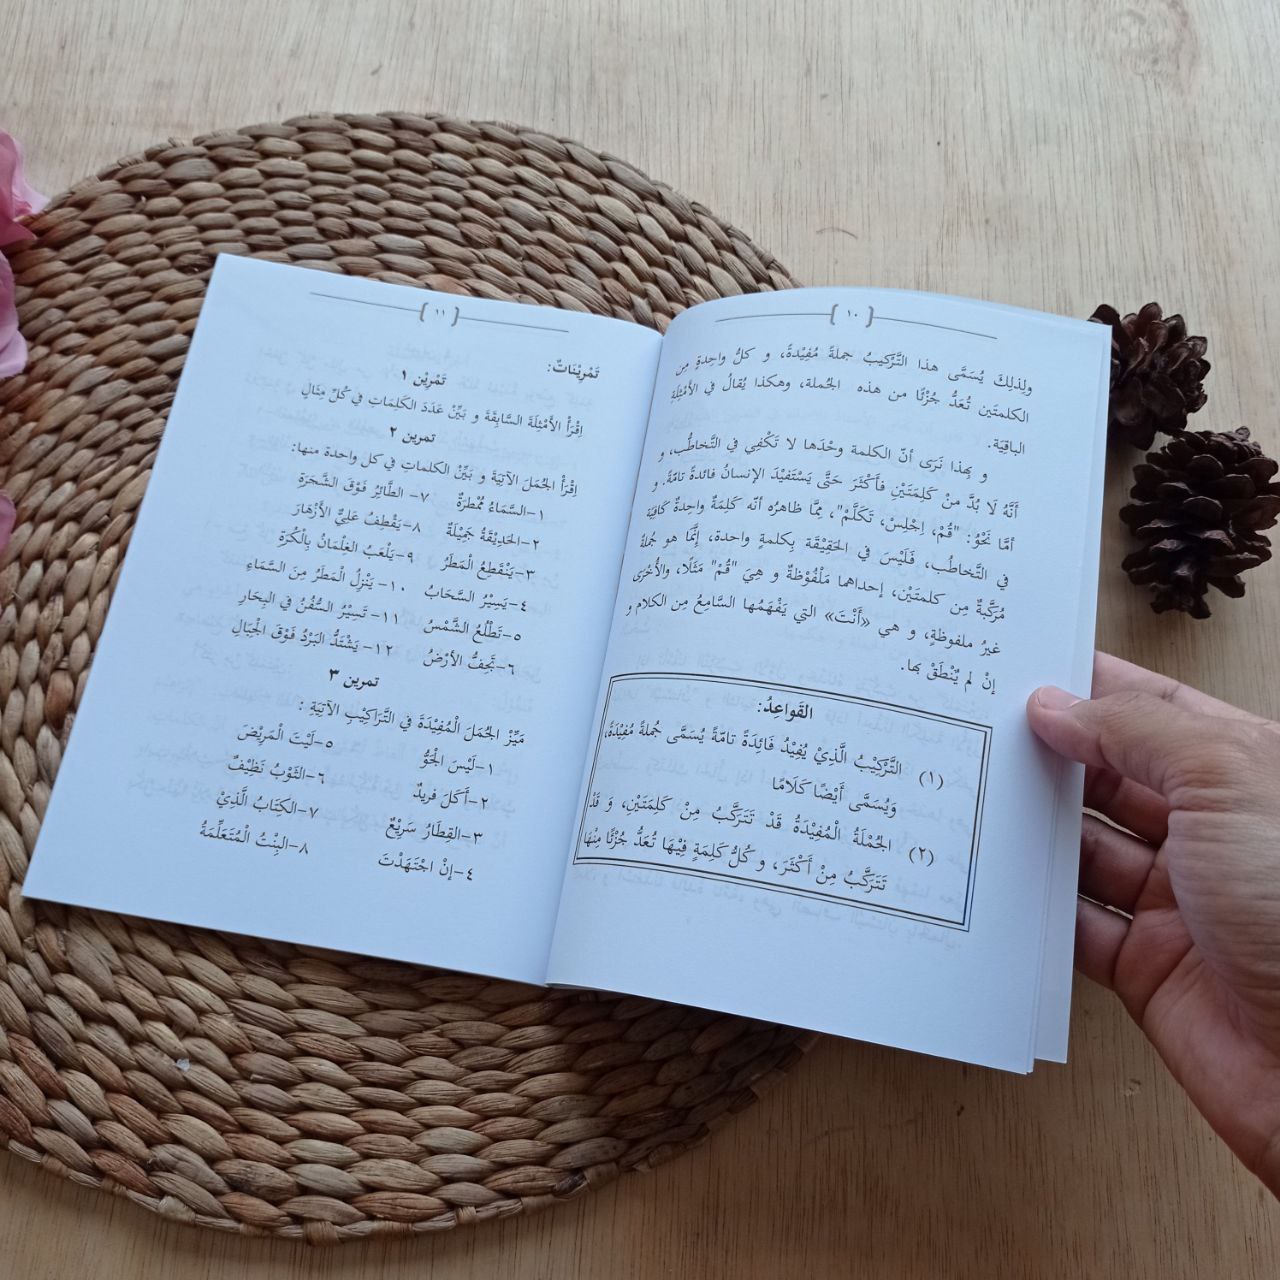 ١٠
ولِذلِكَ يُسَمَّى هذا التَّرْكيبُ جملةً مُفِيْدَةً، و كلُّ واحِدةٍ مِن
الكلمتَين تُعَدُّ جُزْئًا من هذه الجُملة، وهكذا يُقالُ في الأَمْثِلَةِ
الباقِيَة.
و بِهذا نَرَى أنّ الكلمة وحْدَها لا تَكْفِي في التَّخاطُب، و
أَنَّهُ لَا بُدَّ مِنْ كَلِمَتَيْنِ فأَكْثَرَ حَتَّى يَسْتَفيْدَ الإنسانُ فائدةً تامّةً. و
أمَّا نَحْوُ: "قُمْ، اِجْلِسْ، تَكَلَّمْ"، مِمَّا ظاهرُه أنّه كَلِمَةٌ واحِدةٌ كَافِيَة
في التَّخاطُب، فَلَيْسَ في الحَقِيْقَة بِكلمةٍ واحدة، إنَّمَا هو جُملةٌ
مُرَكَّبةٌ مِن كلمتَيْن، إحداهما مَلْفُوْظةٌ وَ هِيَ "قُمْ" مَثَلًا، والأُخْرَى
غيرُ ملفوظةٍ، و هي «أَنْتَ» التي يَفْهَمُها السَّامِعُ مِن الكلام و
إنْ لم يُنْطَقْ بها.
القَواعِدُ:
(١) التَّرْكِيْبُ الَّذِيْ يُفِيْدُ فَائِدَةً تامّةً يُسَمَّى جُملةً مُفِيْدَةً،
وَيُسَمَّى أَيْضًا كَلَامًا
(٢) الجُمْلَةُ الْمُفِيْدَةُ قَدْ تَتَرَكَّبُ مِنْ كَلِمَتَيْنِ، وَ قَدْ
تَتَرَكَّبُ مِنْ أَكْثَرَ، و كُلُّ كَلِمَةٍ فِيْهَا تُعَدُّ جُزْئًا مِنْهَا
١١
تَمْرِيْنَاتٌ:
تَمْرِيْن ١
اِقْرَأْ الأَمْثِلَةَ السَّابِقَةَ و بَيِّنْ عَدَدَ الكَلِمَاتِ في كُلِّ مِثَالٍ
تمرين ٢
اِقْرَأْ الجُمَلَ الآتِيَةَ و بَيِّنْ الكلماتِ في كل واحدة منها:
١-السَّمَاءُ مُمْطِرَةٌ ٧- الطَّائِرُ فَوْقَ الشَّجَرَةِ
٢-الحَدِيْقَةُ جَمِيْلَةٌ ٨- يَقْطِفُ عَلِيٌّ الأَزْهَارَ
٣-يَنْقَطِعُ الْمَطَرُ ٩- يَلْعَبُ الغِلْمَانُ بِالْكُرَةِ
٤-يَسِيْرُ السَّحَابُ ١٠- يَنْزِلُ الْمَطَرُ مِنَ السَّمَاءِ
٥-تَطْلُعُ الشَّمْسُ ١١- تَسِيْرُ السُّفُنُ في البِحَارِ
٦-تَجِفُّ الأَرْضُ ١٢-يَشْتَدُّ البَرْدُ فَوْقَ الْجِبَالِ
تمرين ٣
مَيِّزْ الجُمَلَ الْمُفِيْدَةَ في التَّرَاكِيْبِ الآتِيَةِ :
١-لَيْسَ الْجَوُّ ٥-لَيْتَ الْمَرِيْضَ
٢-أَكَلَ فريدٌ ٦-الثَوْبُ نَظِيْفٌ
٣-القِطَارُ سَرِيْعٌ ٧-الكِتَابُ الَّذِيْ
٤-إنْ اجْتَهَدْتَ ٨-البِنْتُ الْمُتَعَلِّمَةُ